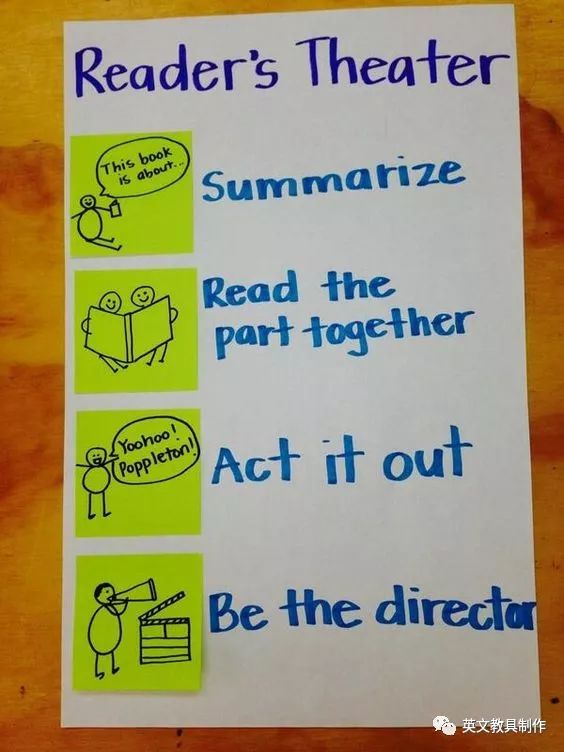 Reader's Theater
This book
is about...
Summarize
Read the
part together
Yoohoo!
Poppleton!
Act it out
Be the director
英文教具制作